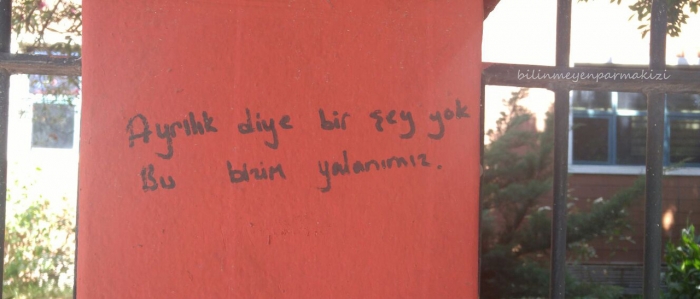 bilinmeyenparmakizi
Ayrılık diye bir şey yok
Bu bizim yalanımız.